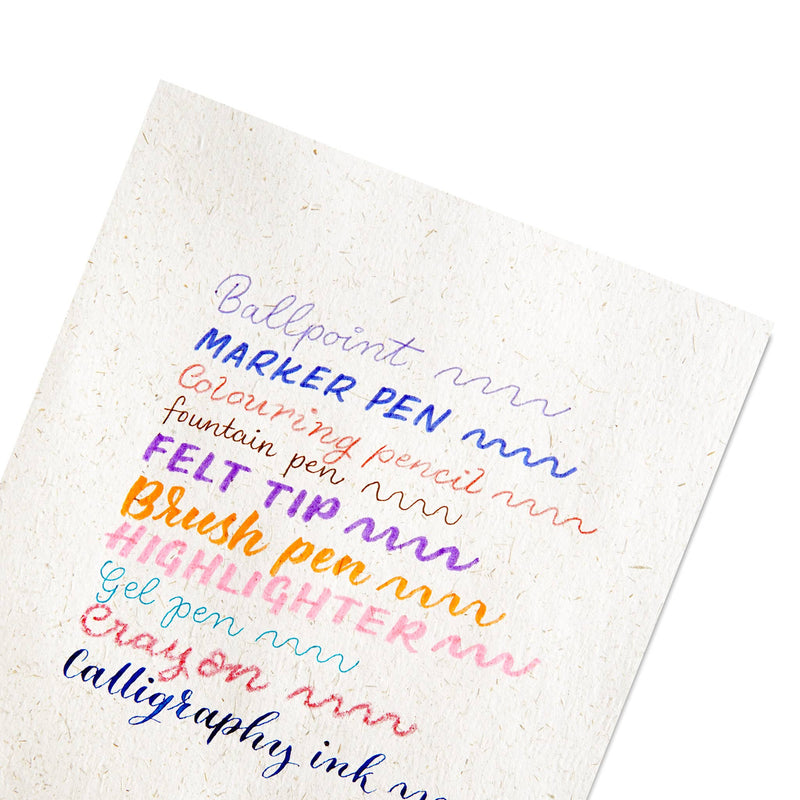 Ballpoint
MARKER PEN
Colouring pencil
fountain pen
FELT TIP
Brush pen
HIGHLIGHTER
Gel pen
Crayon
Calligraphy ink